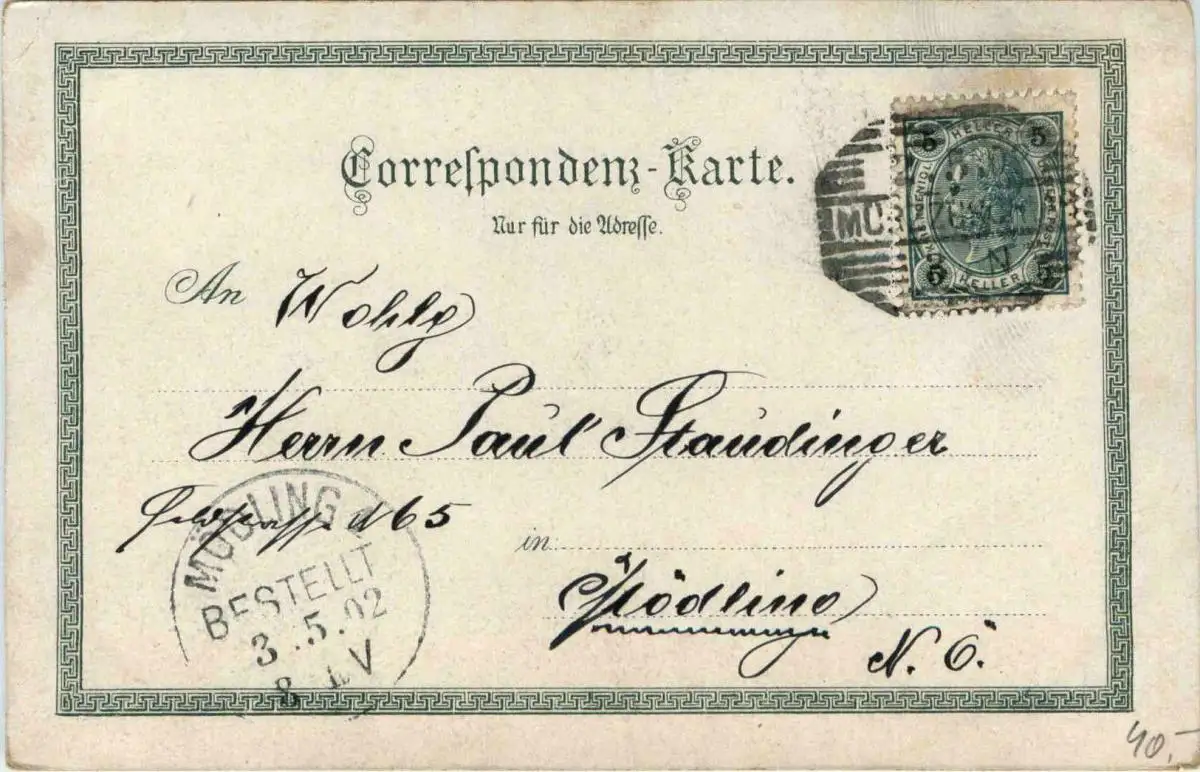 Correspondenz-Karte.
Nur für die Adresse.
5 HELLER 5
MÜRZZUSCHLAG
5 HELLER 5
An Wohlg
Herrn Paul Staudinger
Feldgasse 65
in Mödling
N. Ö.
MÖDLING 1
BESTELLT
3.5.02
8 1 V
40.-